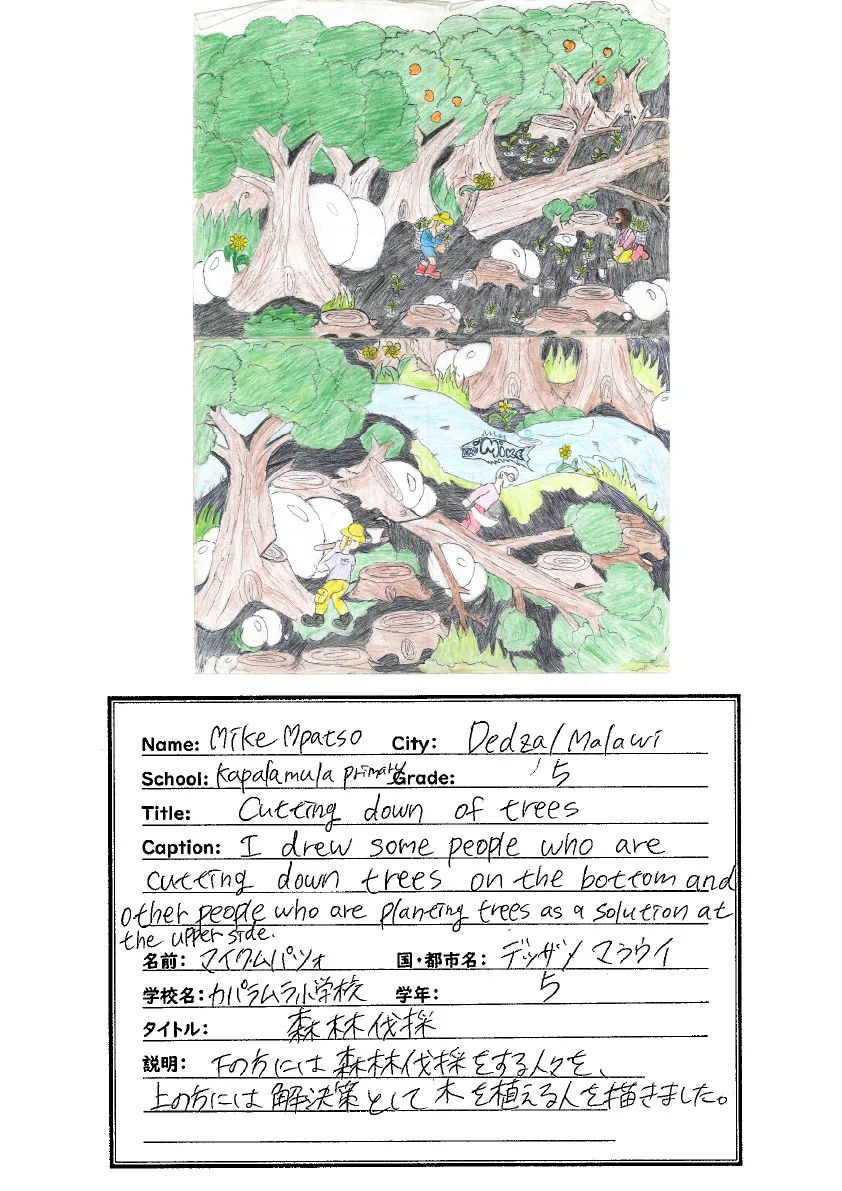 Mike
Name: Mike Mpatso City: Dedza/Malawi
School: Kapalamula primary Grade: 5
Title: Cutting down of trees
Caption: I drew some people who are
cutting down trees on the bottom and
other people who are planting trees as a solution at
the upper side.
名前: マイクムパツォ 国・都市名: デッザン マラウイ
学校名: カパラムラ小学校 学年: 5
タイトル: 森林伐採
説明: 下の方には森林伐採をする人々を、
上の方には解決策として木を植える人を描きました。